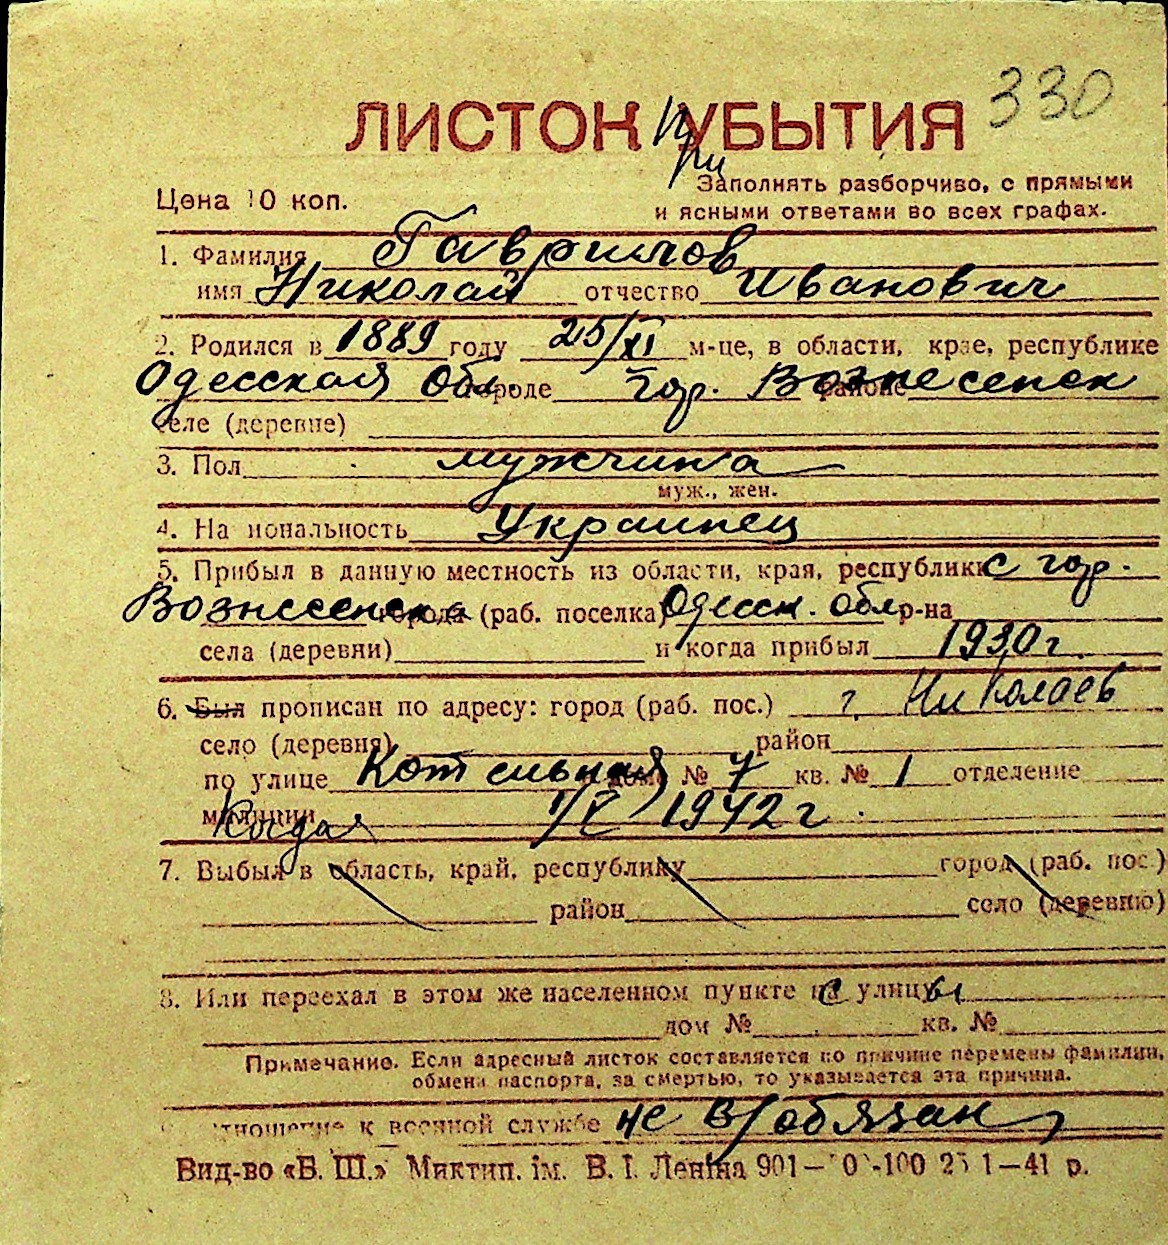 330
ЛИСТОК При УБЫТИЯ
Цена 10 коп.
Заполнять разборчиво, с прямыми
и ясными ответами во всех графах.
1. Фамилия Гаврилов
имя Николай отчество Иванович
2. Родился в 1889 году 25/XI м-це, в области, крае, республике
Одесская Обл. городе гор. Вознесенск районе
селе (деревне)
3. Пол мужчина
муж., жен.
4. На иональность Украинец
5. Прибыл в данную местность из области, края, республики с гор.
Вознесенска города (раб. поселка) Одесск. обл р-на
села (деревни) и когда прибыл 1930 г.
6. Был прописан по адресу: город (раб. пос.) г. Николаев
село (деревня) район
по улице Котельная дом № 7 кв. № 1 отделение
милиции Когда 1/V 1942 г.
7. Выбыл в область, край, республику город (раб. пос.)
район село (деревню)
8. Или переехал в этом же населенном пункте с улицы
дом № кв. №
Примечание. Если адресный листок составляется по причине перемены фамилии,
обмена паспорта, за смертью, то указывается эта причина.
отношение к военной службе не в/обязан
Вид-во «Б. Ш.» Миктип. ім. В. І. Леніна 901— 0 -100 25 1—41 р.